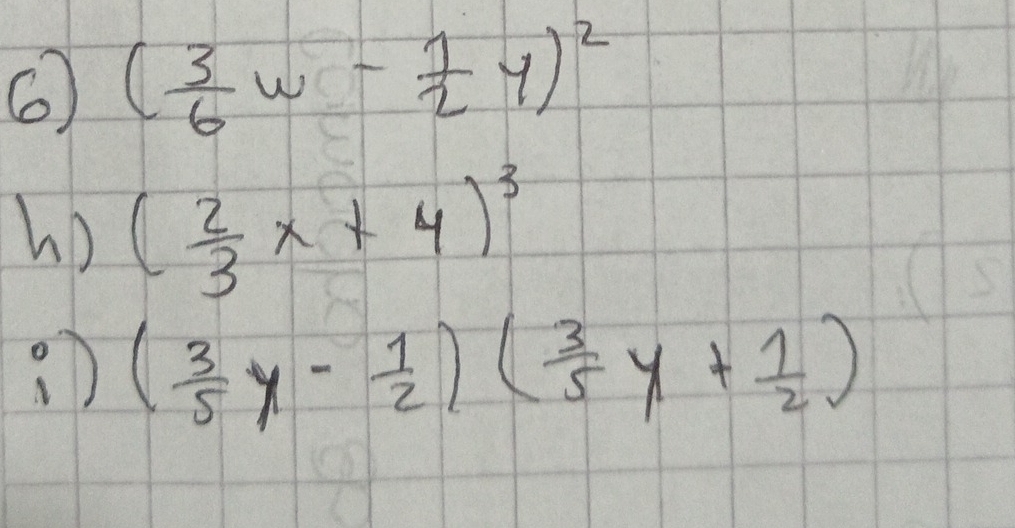 6) (3/6 w - 1/2 y)²
h) (2/3 x + 4)³
i) (3/5 y - 1/2) (3/5 y + 1/2)